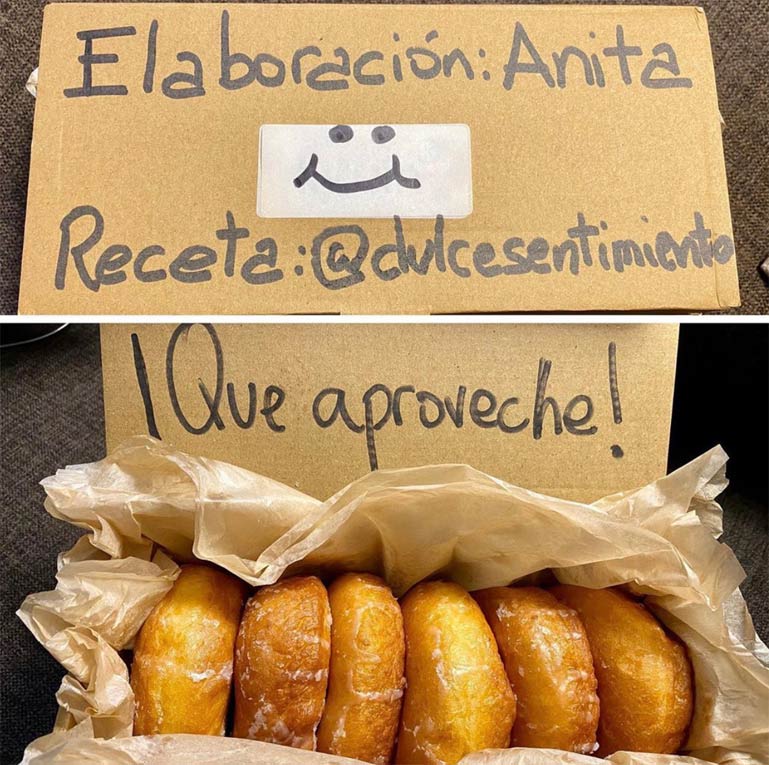 Elaboración: Anita
Receta: @dulcesentimiento
¡Que aproveche!